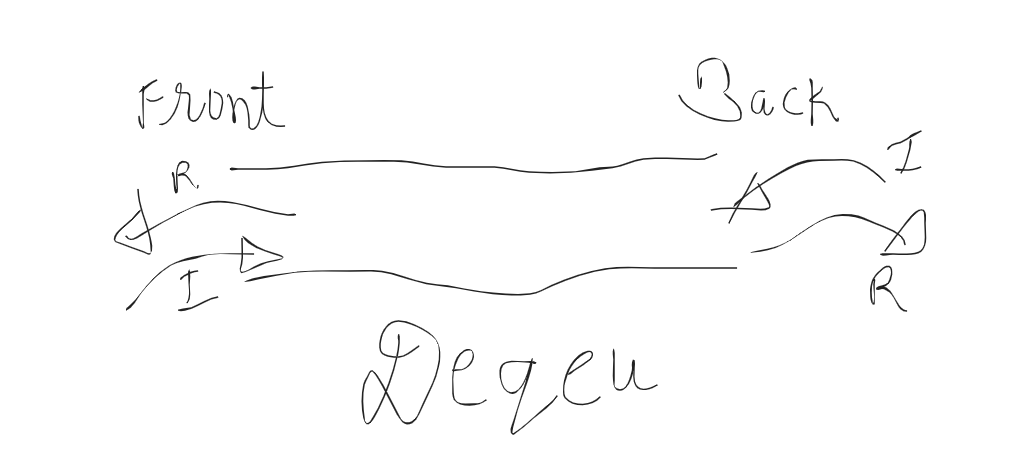 Front Back
R I
I R
Deqeu